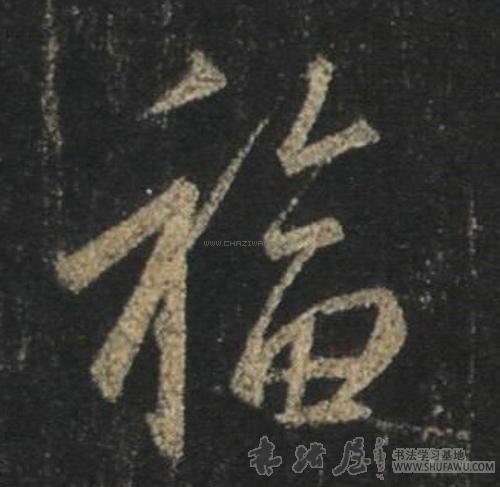 福
WWW.CHAZIWA
书法屋
书法学习基地
WWW.SHUFAWU.COM